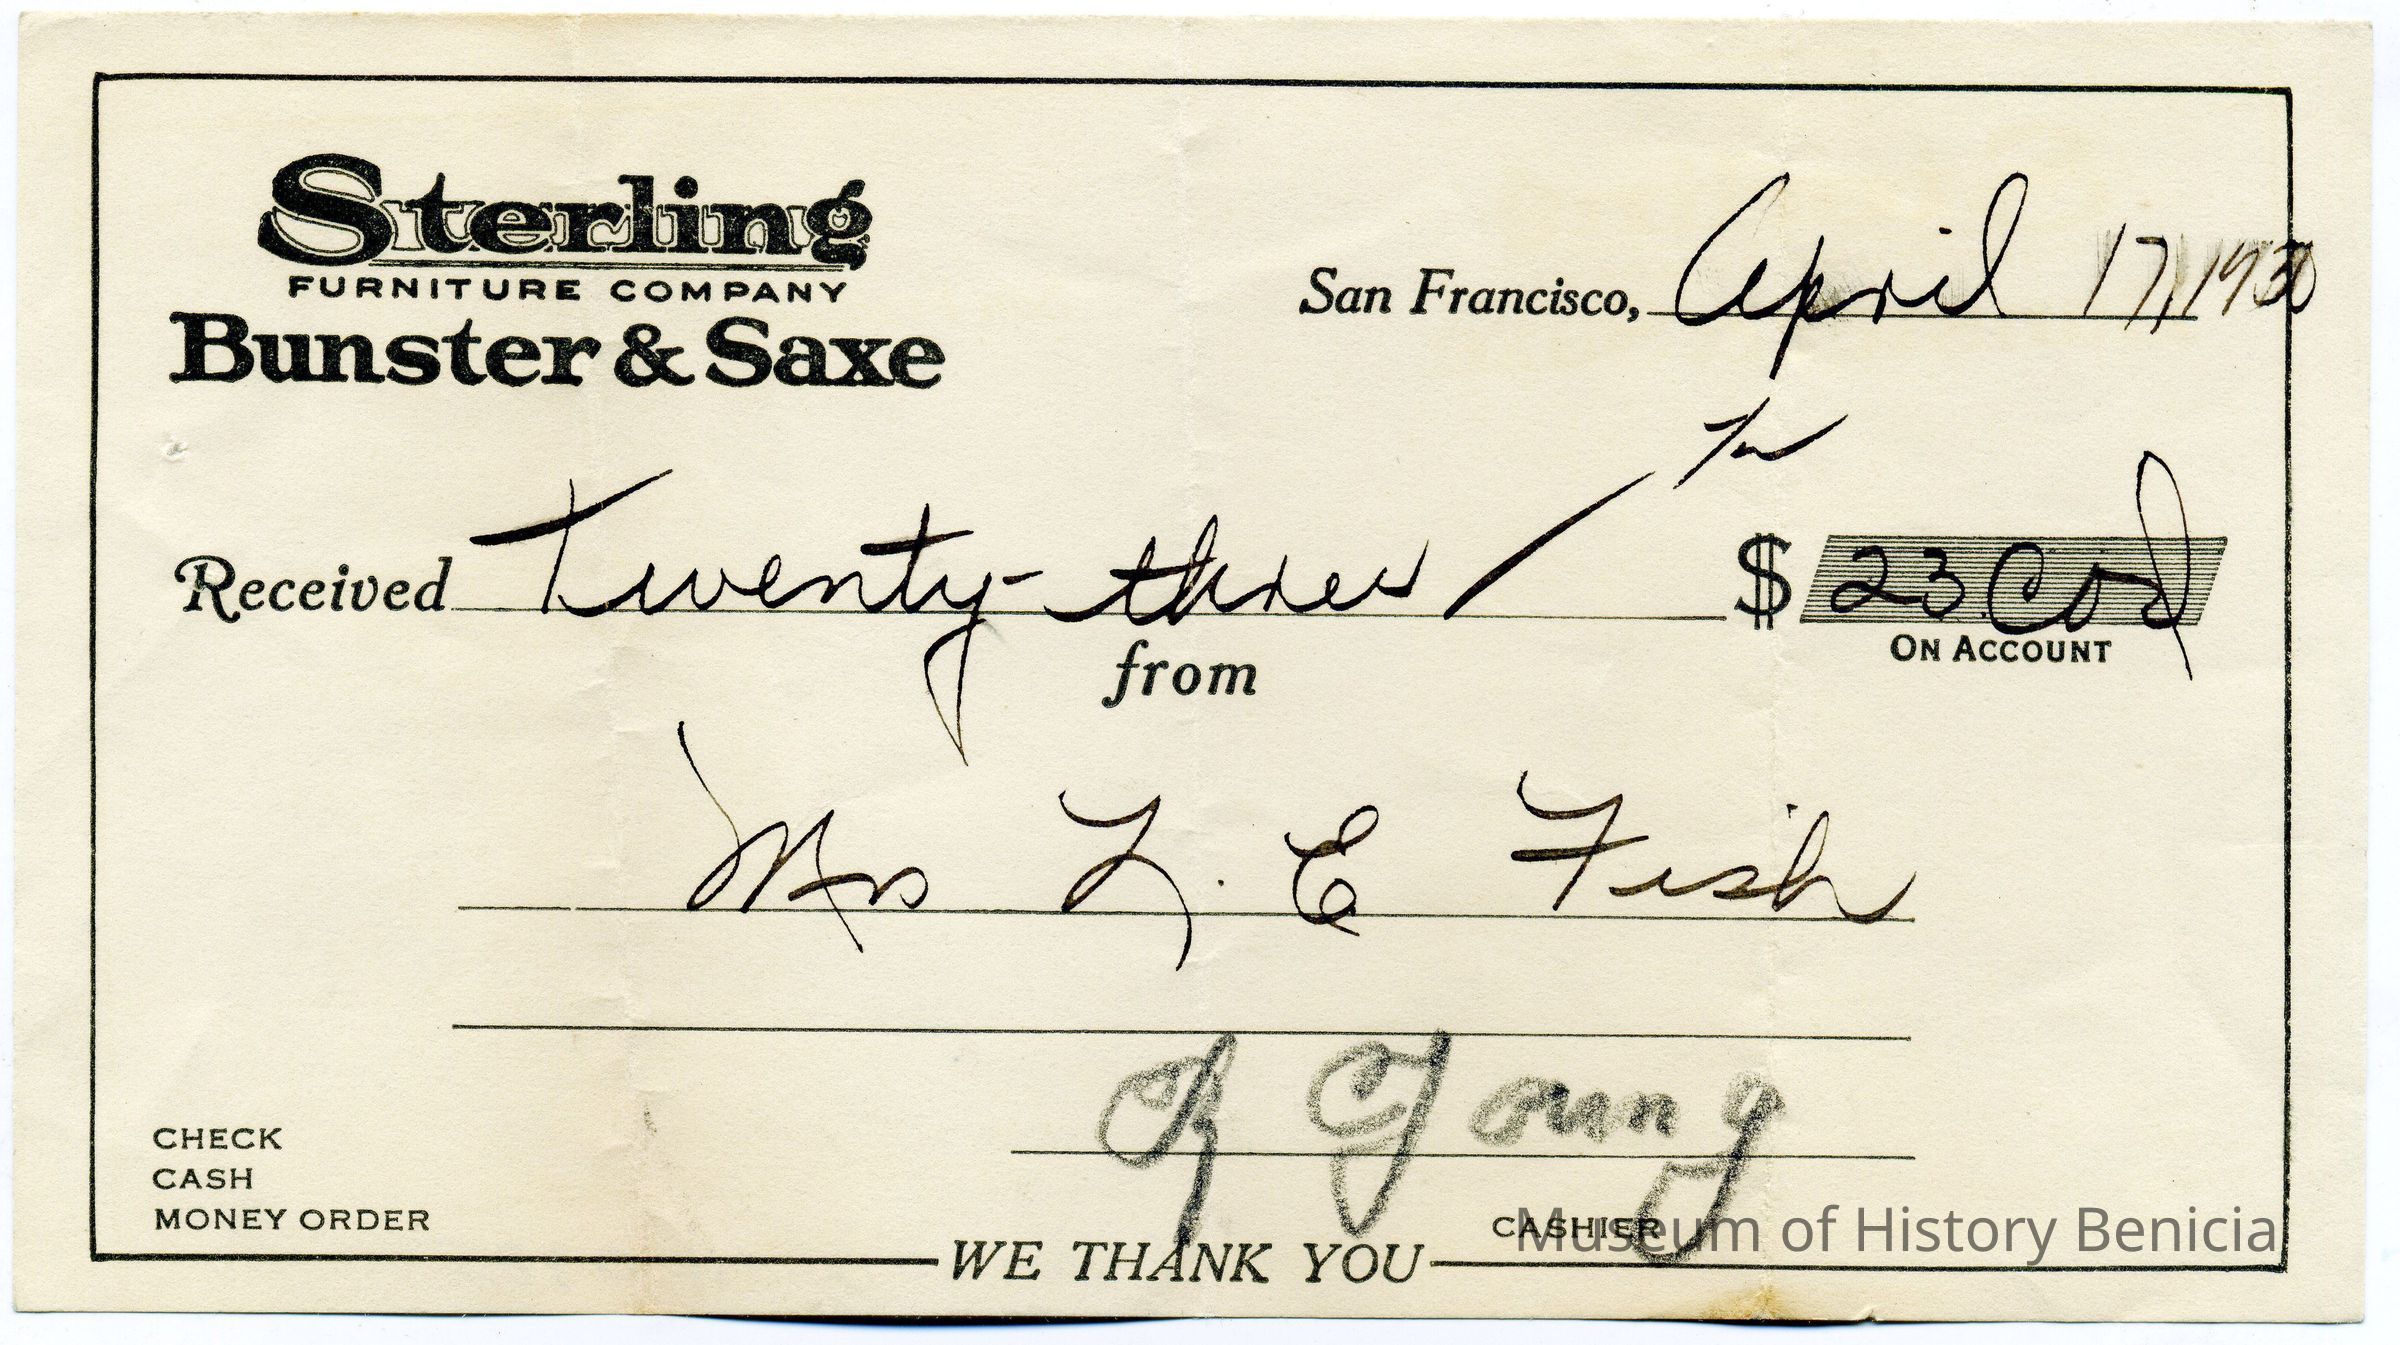 Sterling
FURNITURE COMPANY
Bunster & Saxe
San Francisco, April 17, 1930
Received Twenty-three $ 23 Cod
ON ACCOUNT
from
Mrs L. E Fish
Young
CHECK
CASH
MONEY ORDER
CASHIER
WE THANK YOU
Museum of History Benicia